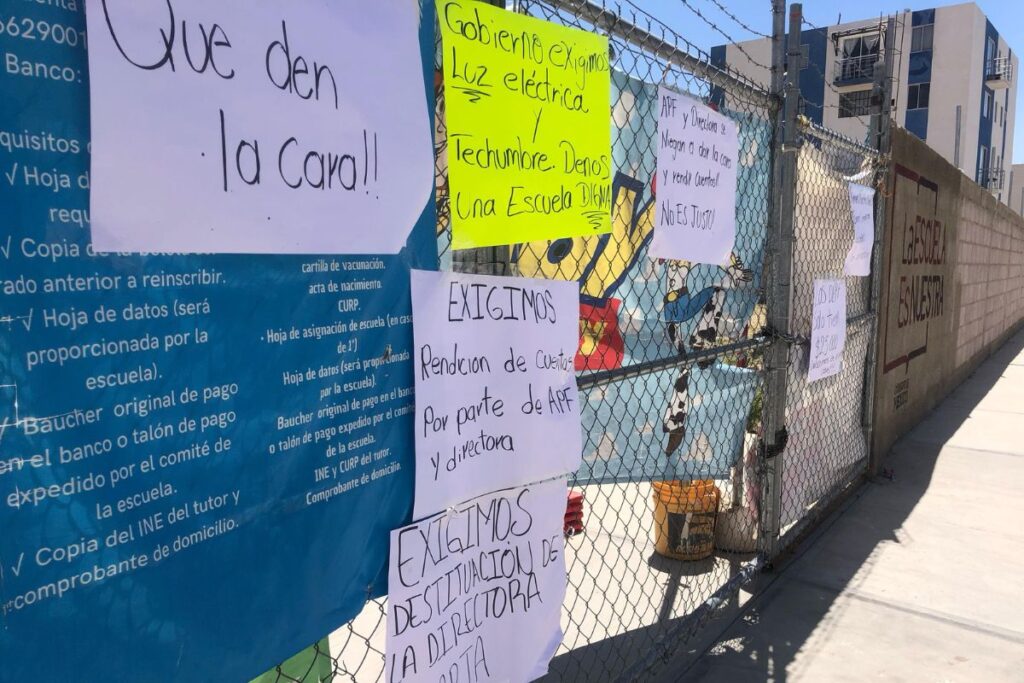 Que den
la cara!!
Gobierno exigimos
Luz eléctrica
y
Techumbre. Denos
una Escuela DIGNA
APF y Directora se
Niegan a dar la cara
y rendir cuentas!!
NO ES JUSTO!
EXIGIMOS
Rendcion de cuentas
Por parte de APF
y directora
EXIGIMOS
DESTITUCION DE
LA DIRECTORA
Banco:
√ Hoja d
√ Copia
rado anterior a reinscribir.
√ Hoja de datos (será
proporcionada por la
escuela).
Baucher original de pago
en el banco o talón de pago
expedido por el comité de
la escuela.
√ Copia del INE del tutor y
comprobante de domicilio.
cartilla de vacunación.
acta de nacimiento.
CURP.
· Hoja de asignación de escuela (en caso
de 1°)
Hoja de datos (será proporcionada
por la escuela).
Baucher original de pago en el banco
o talón de pago expedido por el comité
de la escuela.
INE y CURP del tutor.
Comprobante de domicilio.
LA ESCUELA
ES NUESTRA